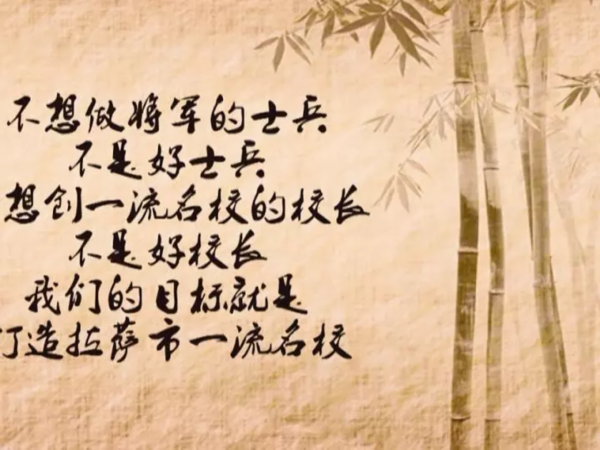 不想做将军的士兵
不是好士兵
想创一流名校的校长
不是好校长
我们的目标就是
打造拉萨市一流名校